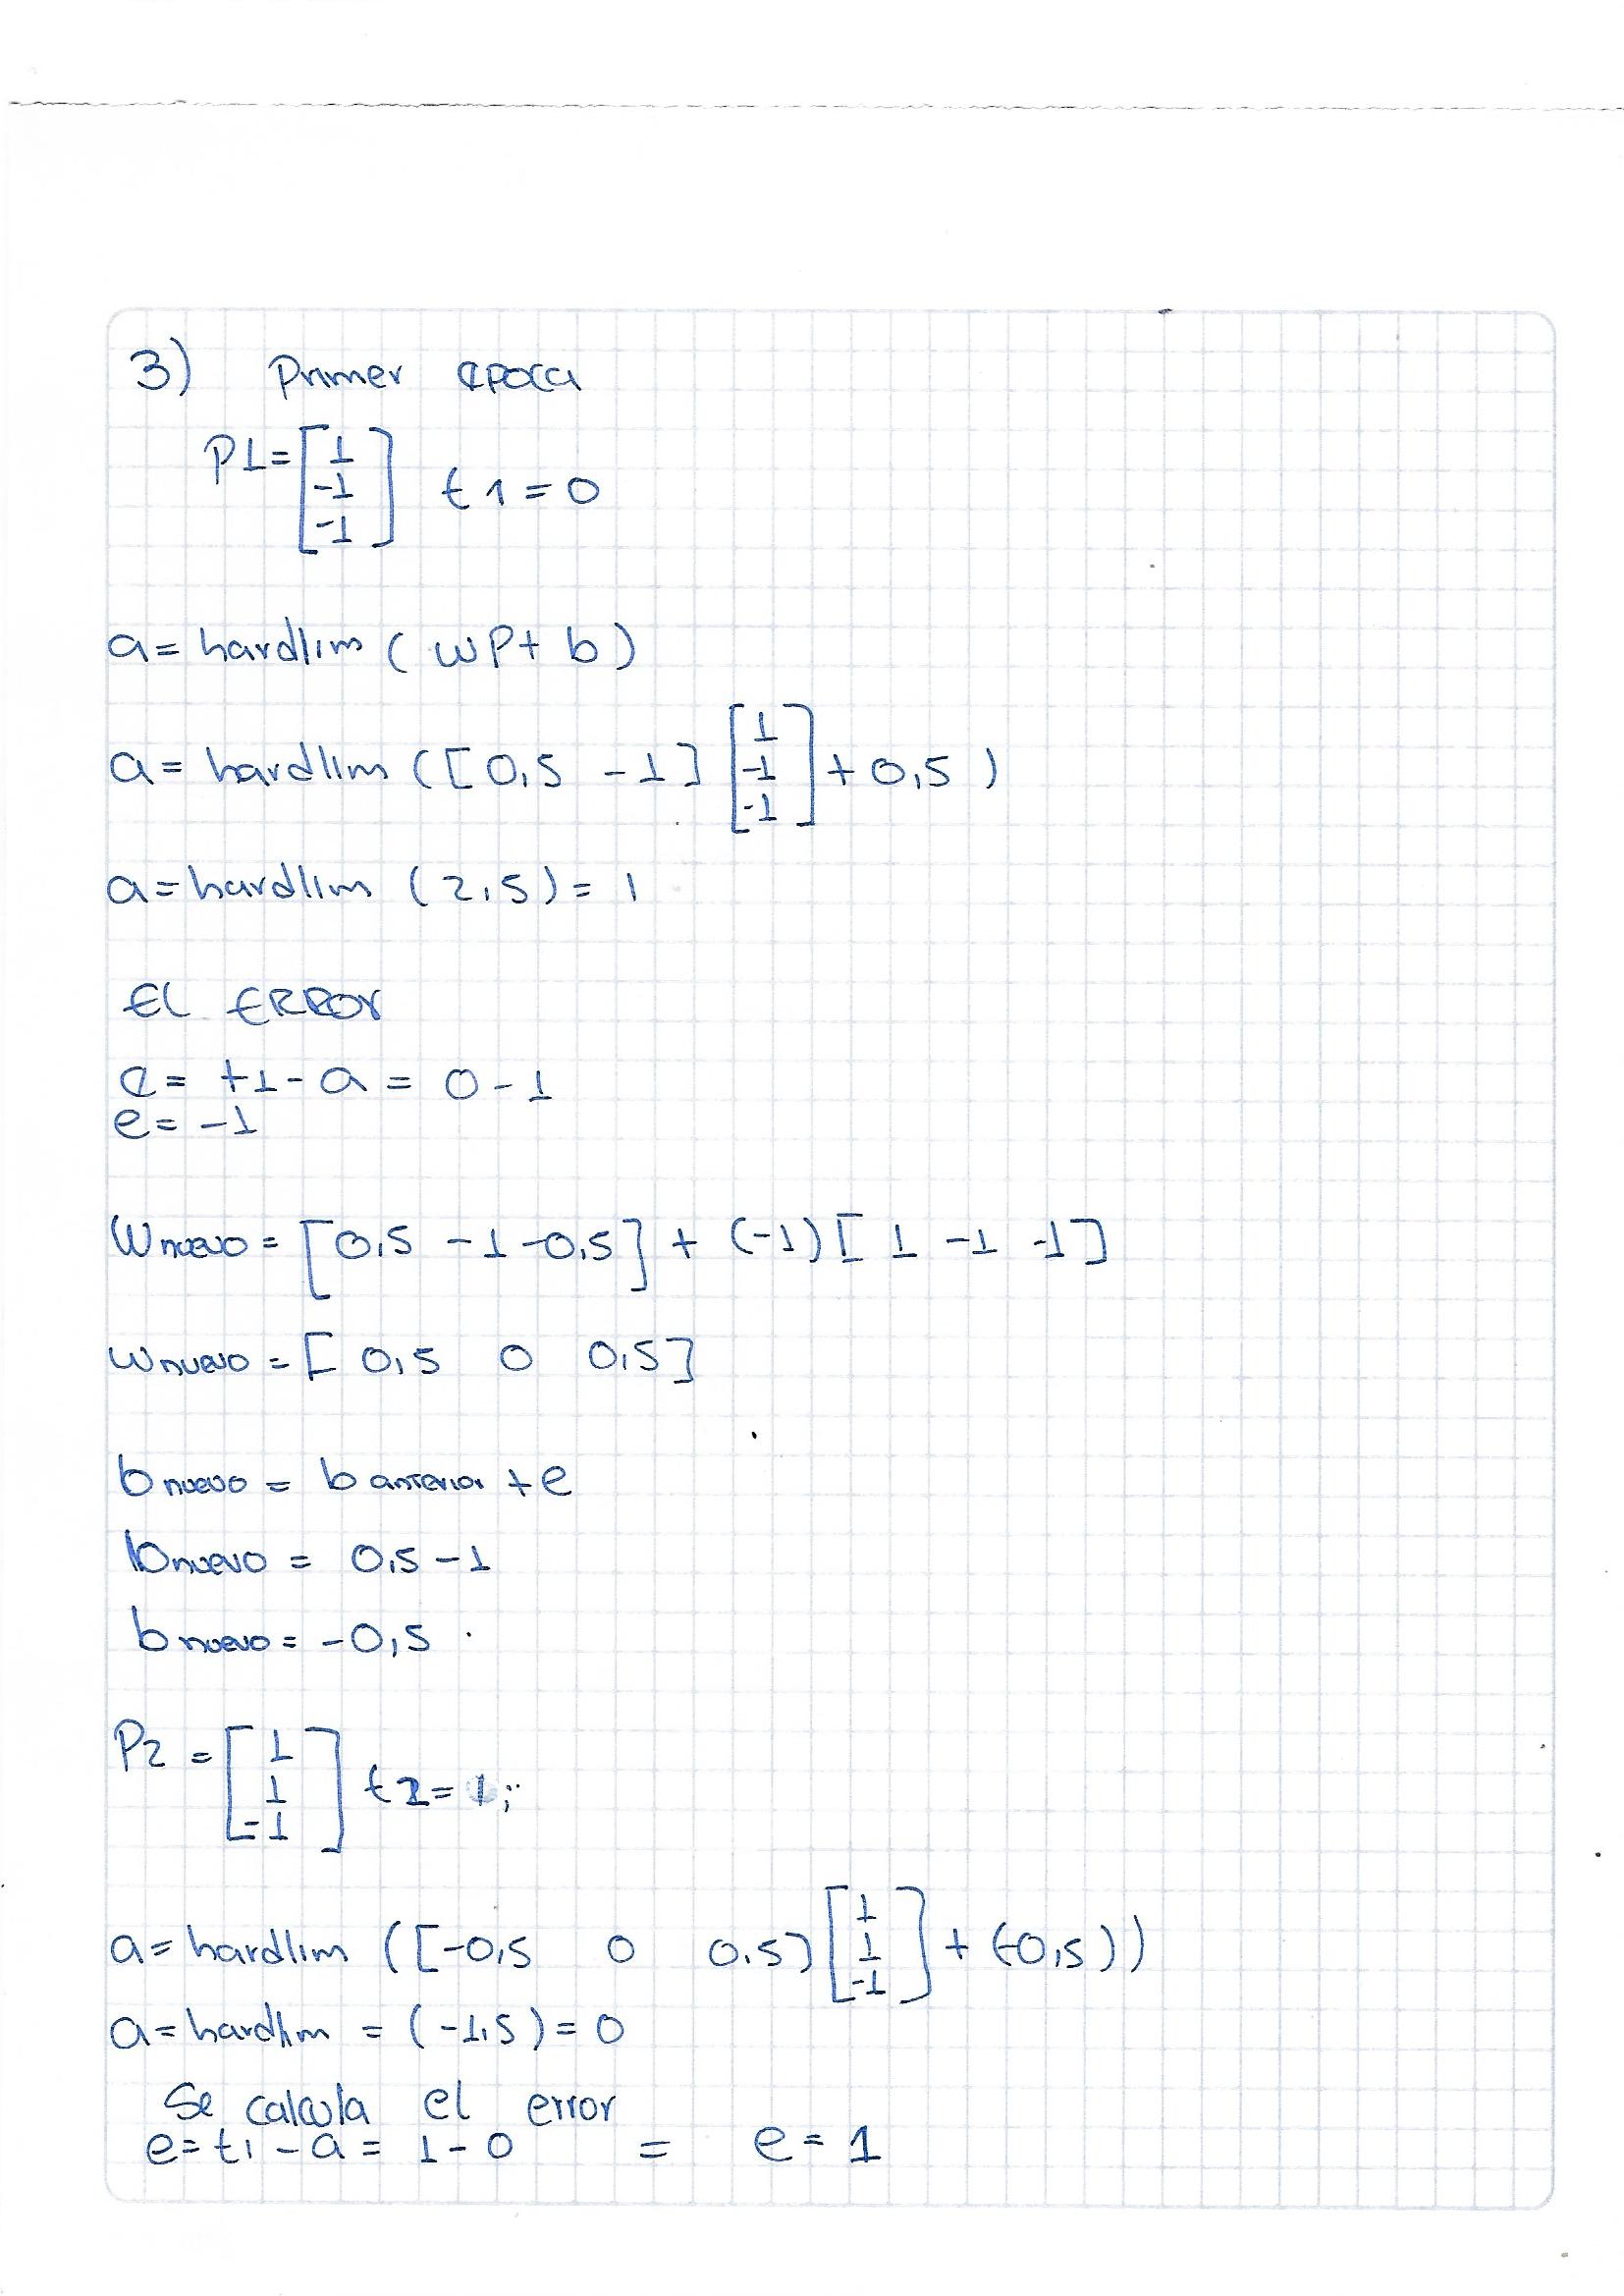 3) Primer epoca
P1= [1 -1 -1] t1=0
a= hardlim ( wP+ b)
a= hardlim ([0,5 -1] [1 -1 -1] +0,5)
a= hardlim (2,5)= 1
El ERROr
e= t1-a= 0-1
e= -1
Wnuevo= [0,5 -1 -0,5] + (-1)[1 -1 -1]
wnuevo=[ 0,5 0 0,5]
bnuevo= b anterior +e
bnuevo = 0,5-1
bnuevo= -0,5
P2 = [1 1 -1] t2= 1;
a= hardlim ([-0,5 0 0.5) [1 1 -1] + (-0,5))
a= hardlim = (-1,5)=0
Se calcula el error
e= t1 -a= 1-0 = e= 1